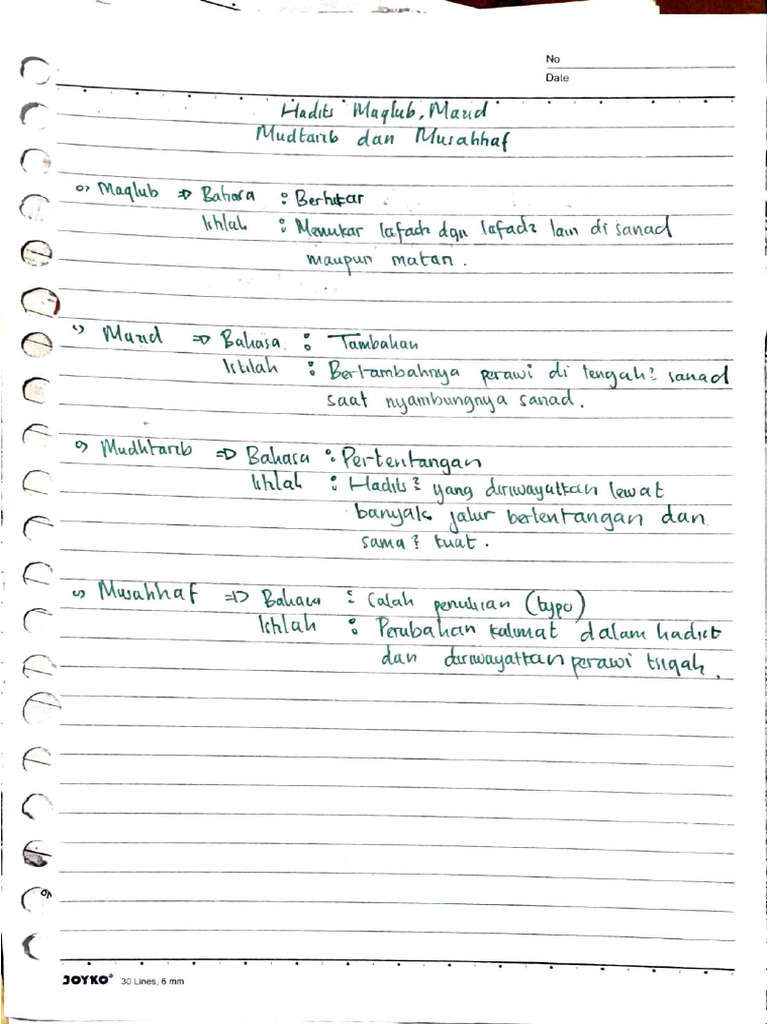 No
Date
Hadits Maqlub, Mazid
Mudtarib dan Musahhaf
Maqlub => Bahasa : Bertukar
Istilah : Menukar lafadz dgn lafadz lain di sanad
maupun matan.
Mazid => Bahasa : Tambahan
Istilah : Bertambahnya perawi di tengah² sanad
saat nyambungnya sanad.
Mudhtarib => Bahasa : Pertentangan
Istilah : Hadits² yang diriwayatkan lewat
banyak jalur bertentangan dan
sama² kuat.
Musahhaf => Bahasa : Salah penulisan (typo)
Istilah : Perubahan kalimat dalam hadist
dan diriwayatkan perawi tsiqah.
JOYKO® 30 Lines, 6 mm